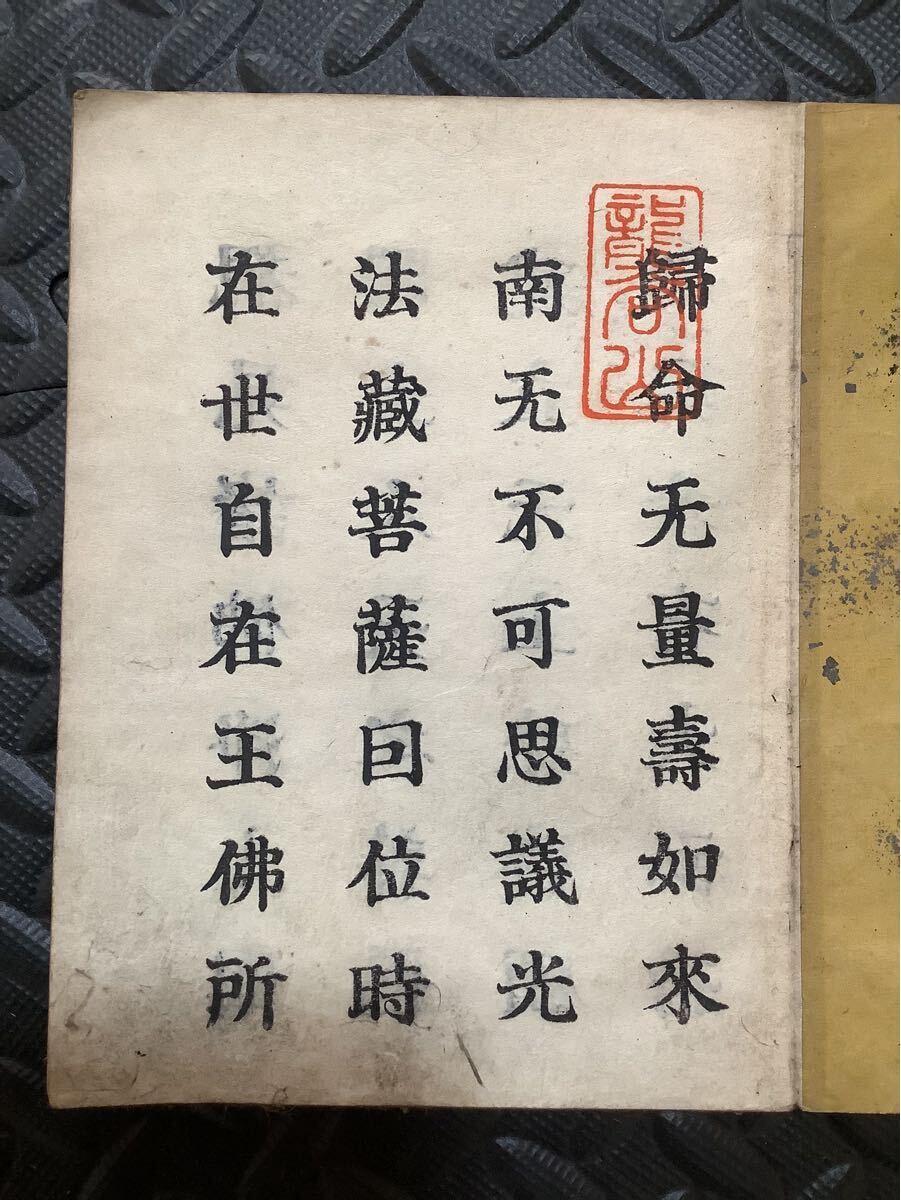 龍谷山
歸命无量壽如來
南无不可思議光
法藏菩薩囙位時
在世自在王佛所